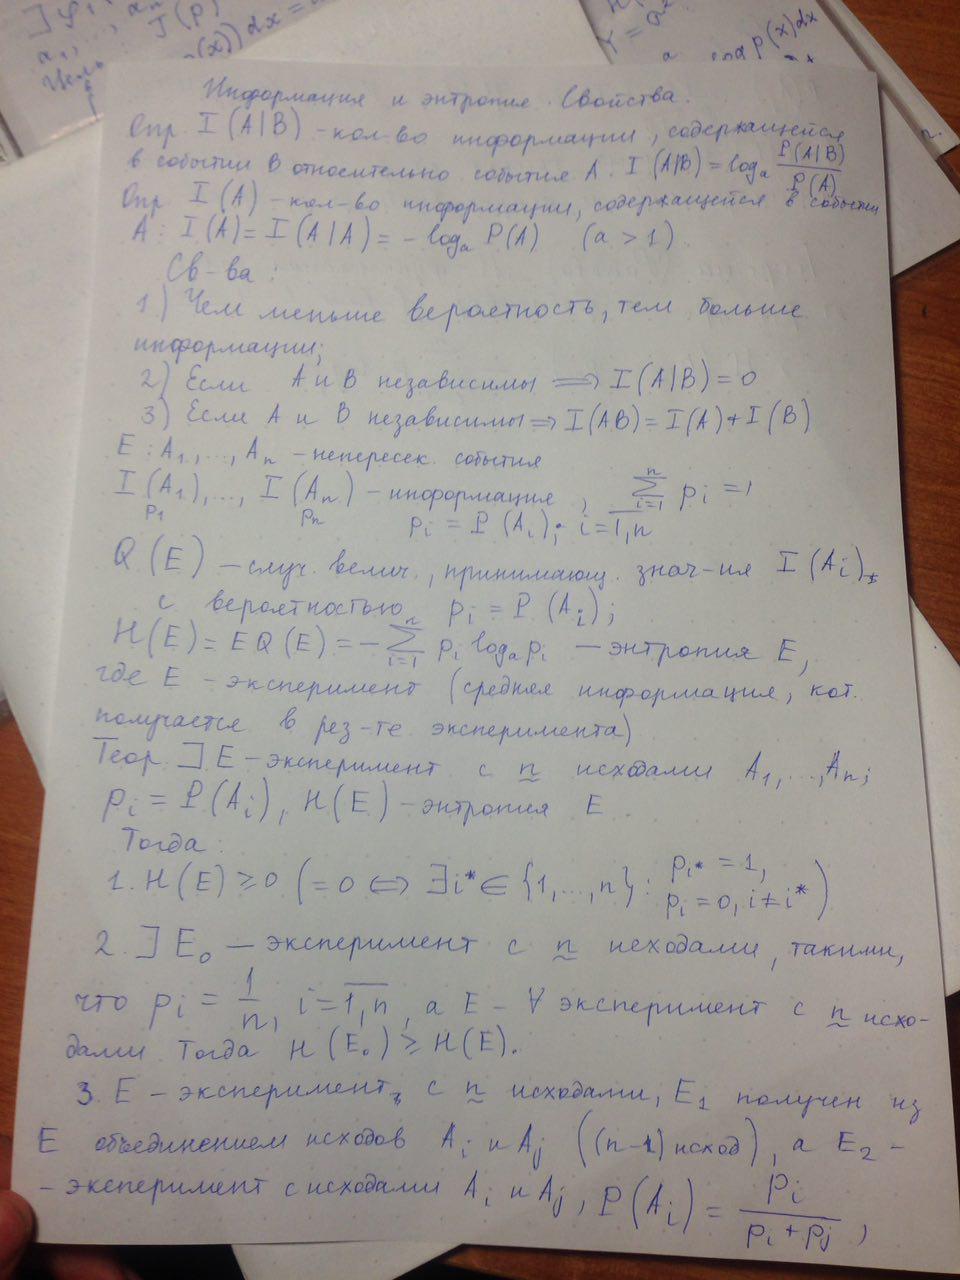 ] φ₁
a₁, ..., aₙ
J(p)
(x))dx =
Y =
p(x)dx
Информация и энтропия. Свойства.
Опр. I(A|B) - кол-во информации, содержащейся
в событии B относительно события A. I(A|B) = logₐ P(A|B)/P(A)
Опр I(A) - кол-во информации, содержащейся в событии
A: I(A) = I(A|A) = - logₐ P(A) (a > 1)
Св-ва:
1) Чем меньше вероятность, тем больше
информации;
2) Если A и B независимы ⟹ I(A|B) = 0
3) Если A и B независимы ⟹ I(AB) = I(A) + I(B)
E: A₁, ..., Aₙ - непересек. события
I(A₁), ..., I(Aₙ) - информация, ∑ᵢ₌₁ⁿ pᵢ = 1
p₁ pₙ pᵢ = P(Aᵢ); i = 1,n
Q(E) - случ. велич., принимающ. знач-ия I(Aᵢ)
с вероятностью pᵢ = P(Aᵢ);
H(E) = EQ(E) = - ∑ᵢ₌₁ⁿ pᵢ logₐ pᵢ - энтропия E,
где E - эксперимент (средняя информация, кот.
получается в рез-те эксперимента)
Теор. ] E - эксперимент с n исходами A₁, ..., Aₙ;
pᵢ = P(Aᵢ), H(E) - энтропия E
Тогда:
1. H(E) ≥ 0 (= 0 ⟺ ∃ i* ∈ {1, ..., n}: pᵢ* = 1,
pᵢ = 0, i ≠ i*)
2. ] E₀ - эксперимент с n исходами, такими,
что pᵢ = 1/n, i = 1,n, а E - ∀ эксперимент с n исхо-
дами. Тогда H(E₀) ≥ H(E).
3. E - эксперимент с n исходами, E₁ получен из
E объединением исходов Aᵢ и Aⱼ ((n-1) исход), а E₂ -
- эксперимент с исходами Aᵢ и Aⱼ, P(Aᵢ) = pᵢ/(pᵢ + pⱼ),